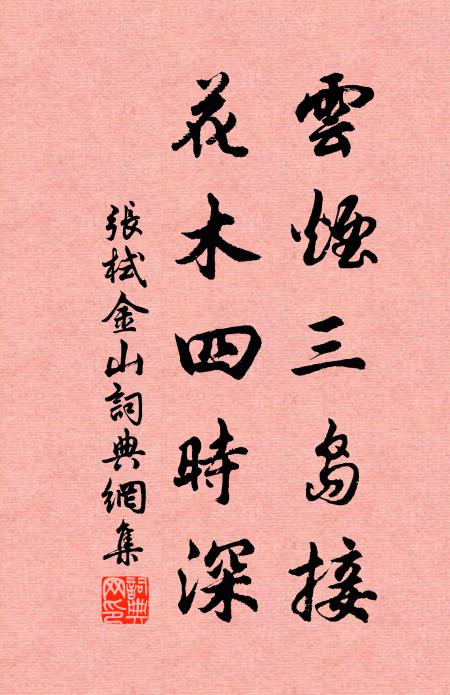 雲煙三島接
花木四時深
張栻金山詞典網集
詞典网印